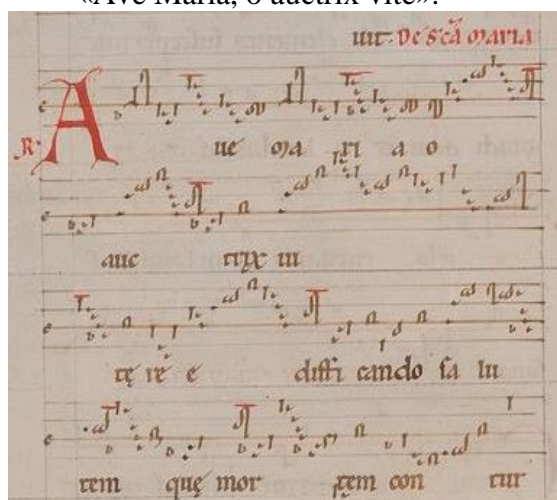 «Ave Maria, o auctrix vite».
De sc̄a maria
R. A ue ma ri a o
auc trix ui
tę re e diffi cando sa lu
tem quę mor tem con tur